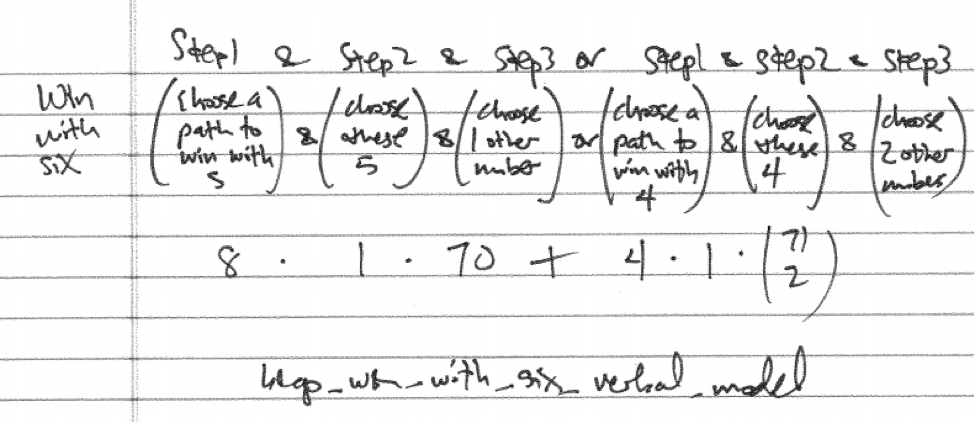 Step1 & Step2 & Step3 or Step1 & Step2 & Step3
Win with six (choose a path to win with 5) & (choose these 5) & (choose 1 other number) or (choose a path to win with 4) & (choose these 4) & (choose 2 other numbers)
8 · 1 · 70 + 4 · 1 · (71 2)
win_with_six_verbal_model